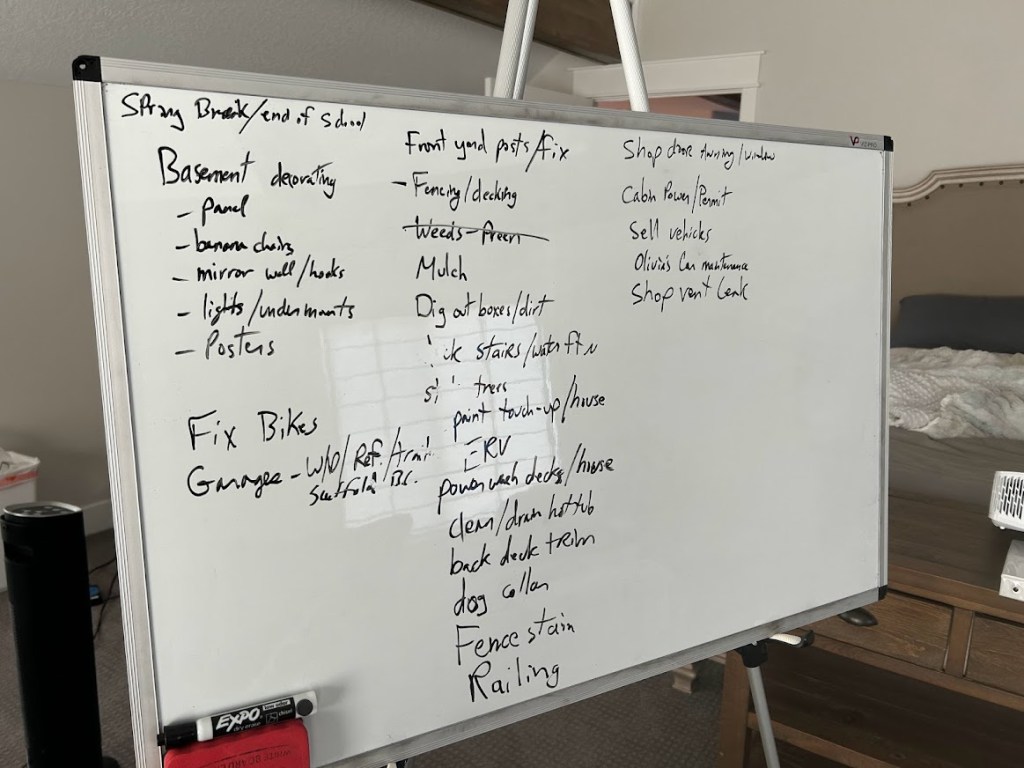 Spring Break/end of School
Basement decorating
- panel
- banana chairs
- mirror wall/hooks
- lights/undermounts
- Posters
Fix Bikes
Garages - W/D/Ref./
Front yard posts/fix
- Fencing/decking
Weeds - Preen
Mulch
Dig out boxes/dirt
stairs/water
trees
paint touch-up/house
ERV
power wash decks/house
clean/drain hot tub
back deck trim
dog collar
Fence stain
Railing
Shop door Awning/window
Cabin Power/Permit
Sell vehicles
Olivia's Car maintenance
Shop vent Leak
EXPO